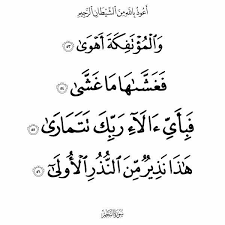 أعوذ بالله من الشيطان الرجيم
وَٱلْمُؤْتَفِكَةَ أَهْوَىٰ ٥٣
فَغَشَّىٰهَا مَا غَشَّىٰ ٥٤
فَبِأَىِّ ءَالَآءِ رَبِّكَ تَتَمَارَىٰ ٥٥
هَٰذَا نَذِيرٌ مِّنَ ٱلنُّذُرِ ٱلْأُولَىٰٓ ٥٦
سورة النجم